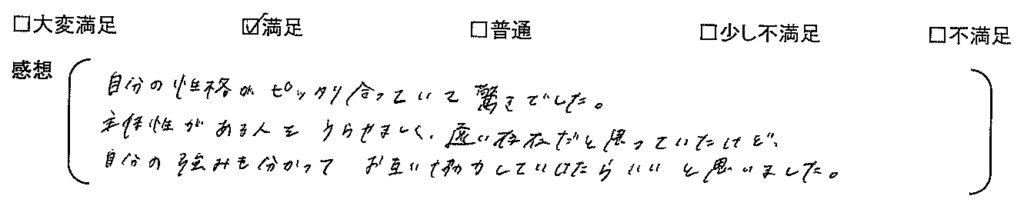 □大変満足 ☑満足 □普通 □少し不満足 □不満足
感想
自分の性格がピッタリ合っていて驚きでした。
主体性がある人をうらやましく、遠い存在だと思っていたけど、
自分の強みも分かってお互い協力していけたらいいと思いました。